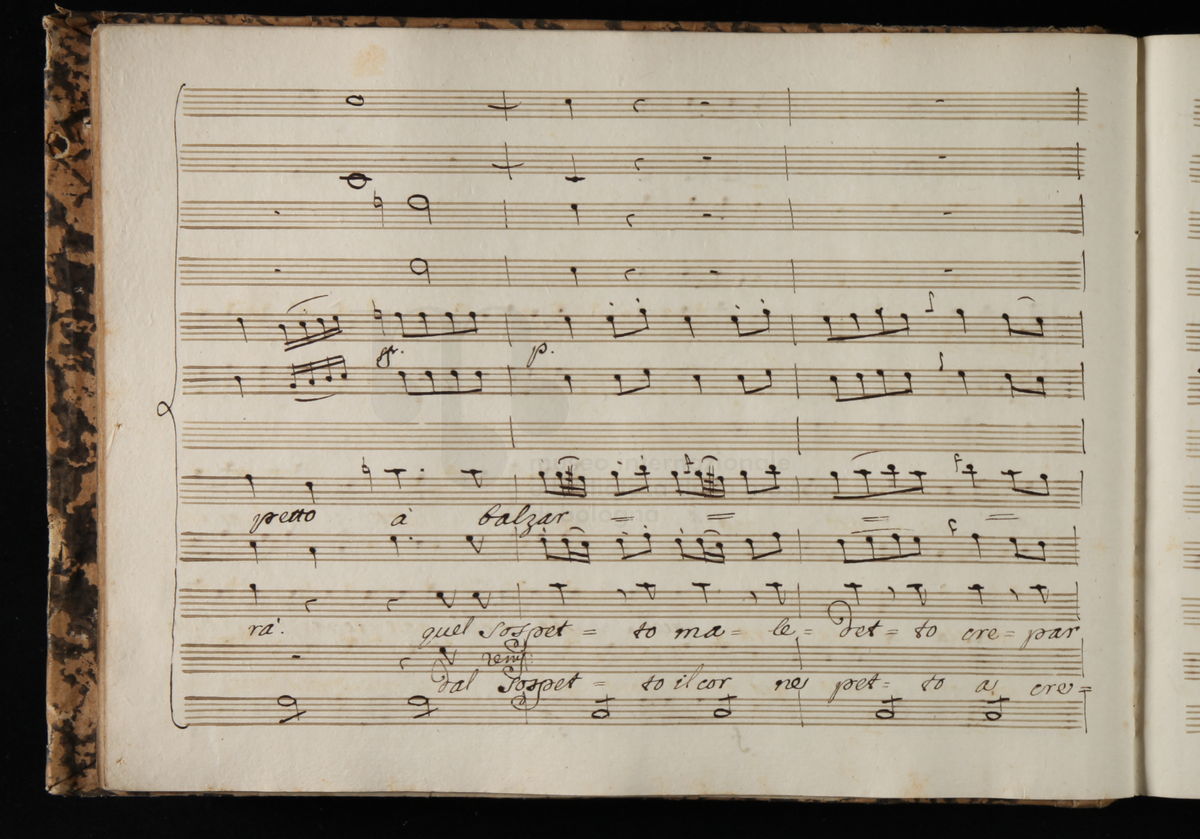 p.
petto à balzar = = = =
rà. quel sospet = to ma = le = det = to cre = par
dal sospet = to il cor nel pet = to a cre =
museo internazionale
bologna